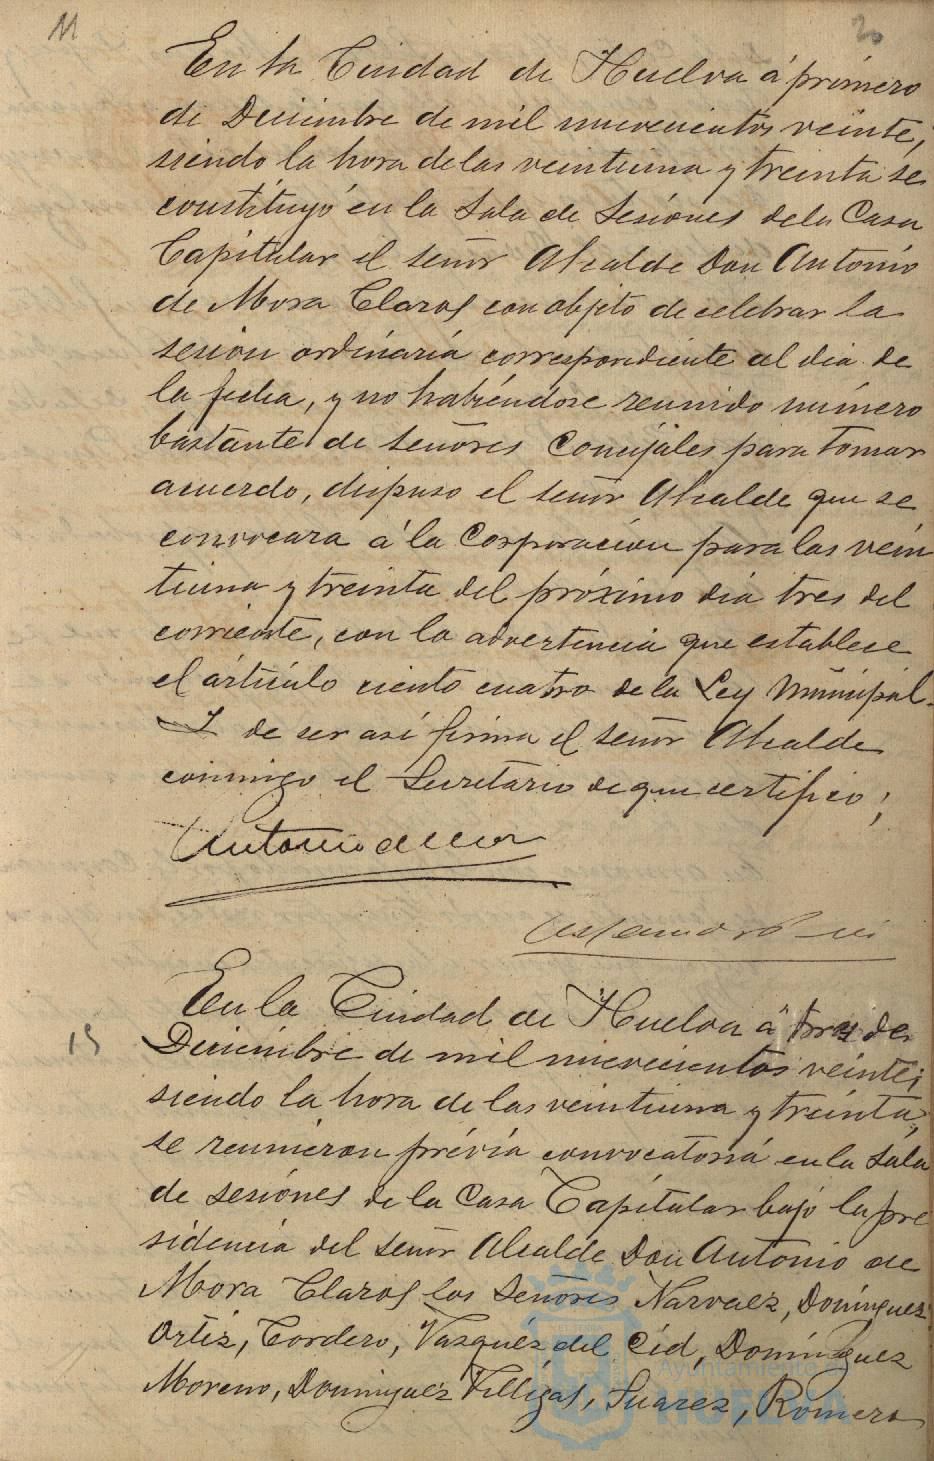 11
20
En la Ciudad de Huelva á primero
de Diciembre de mil nuevecientos veinte,
siendo la hora de las veintiuna y treinta se
constituyó en la Sala de Sesiones de la Casa
Capitular el señor Alcalde Don Antonio
de Mora Claros con objeto de celebrar la
sesion ordinaria correspondiente al dia de
la fecha, y no habiéndose reunido número
bastante de señores Concejales para tomar
acuerdo, dispuso el señor Alcalde que se
convocara á la Corporacion para las vein
tiuna y treinta del próximo dia tres del
corriente, con la advertencia que establece
el artículo ciento cuatro de la Ley Municipal.
Y de ser asi firma el señor Alcalde
conmigo el Secretario de que certifico;
Antonio de Mor
En la Ciudad de Huelva á tres de
15
Diciembre de mil nuevecientos veinte;
siendo la hora de las veintiuna y treinta,
se reunieron prévia convocatoria en la Sala
de sesiones de la Casa Capitular bajo la pre
sidencia del señor Alcalde Don Antonio de
Mora Claros los Señores Narvaez, Dominguez
Ortiz, Cordero, Vazquez del Cid, Dominguez
Moreno, Dominguez Villegas, Suarez, Romero
Ayuntamiento de
HUELVA